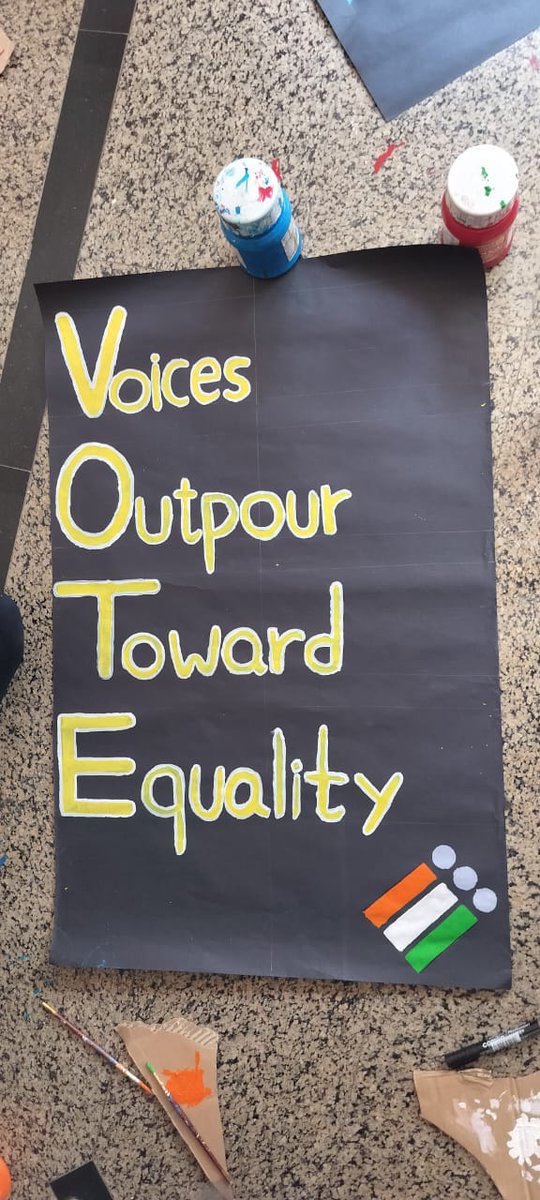 Voices
Outpour
Toward
Equality